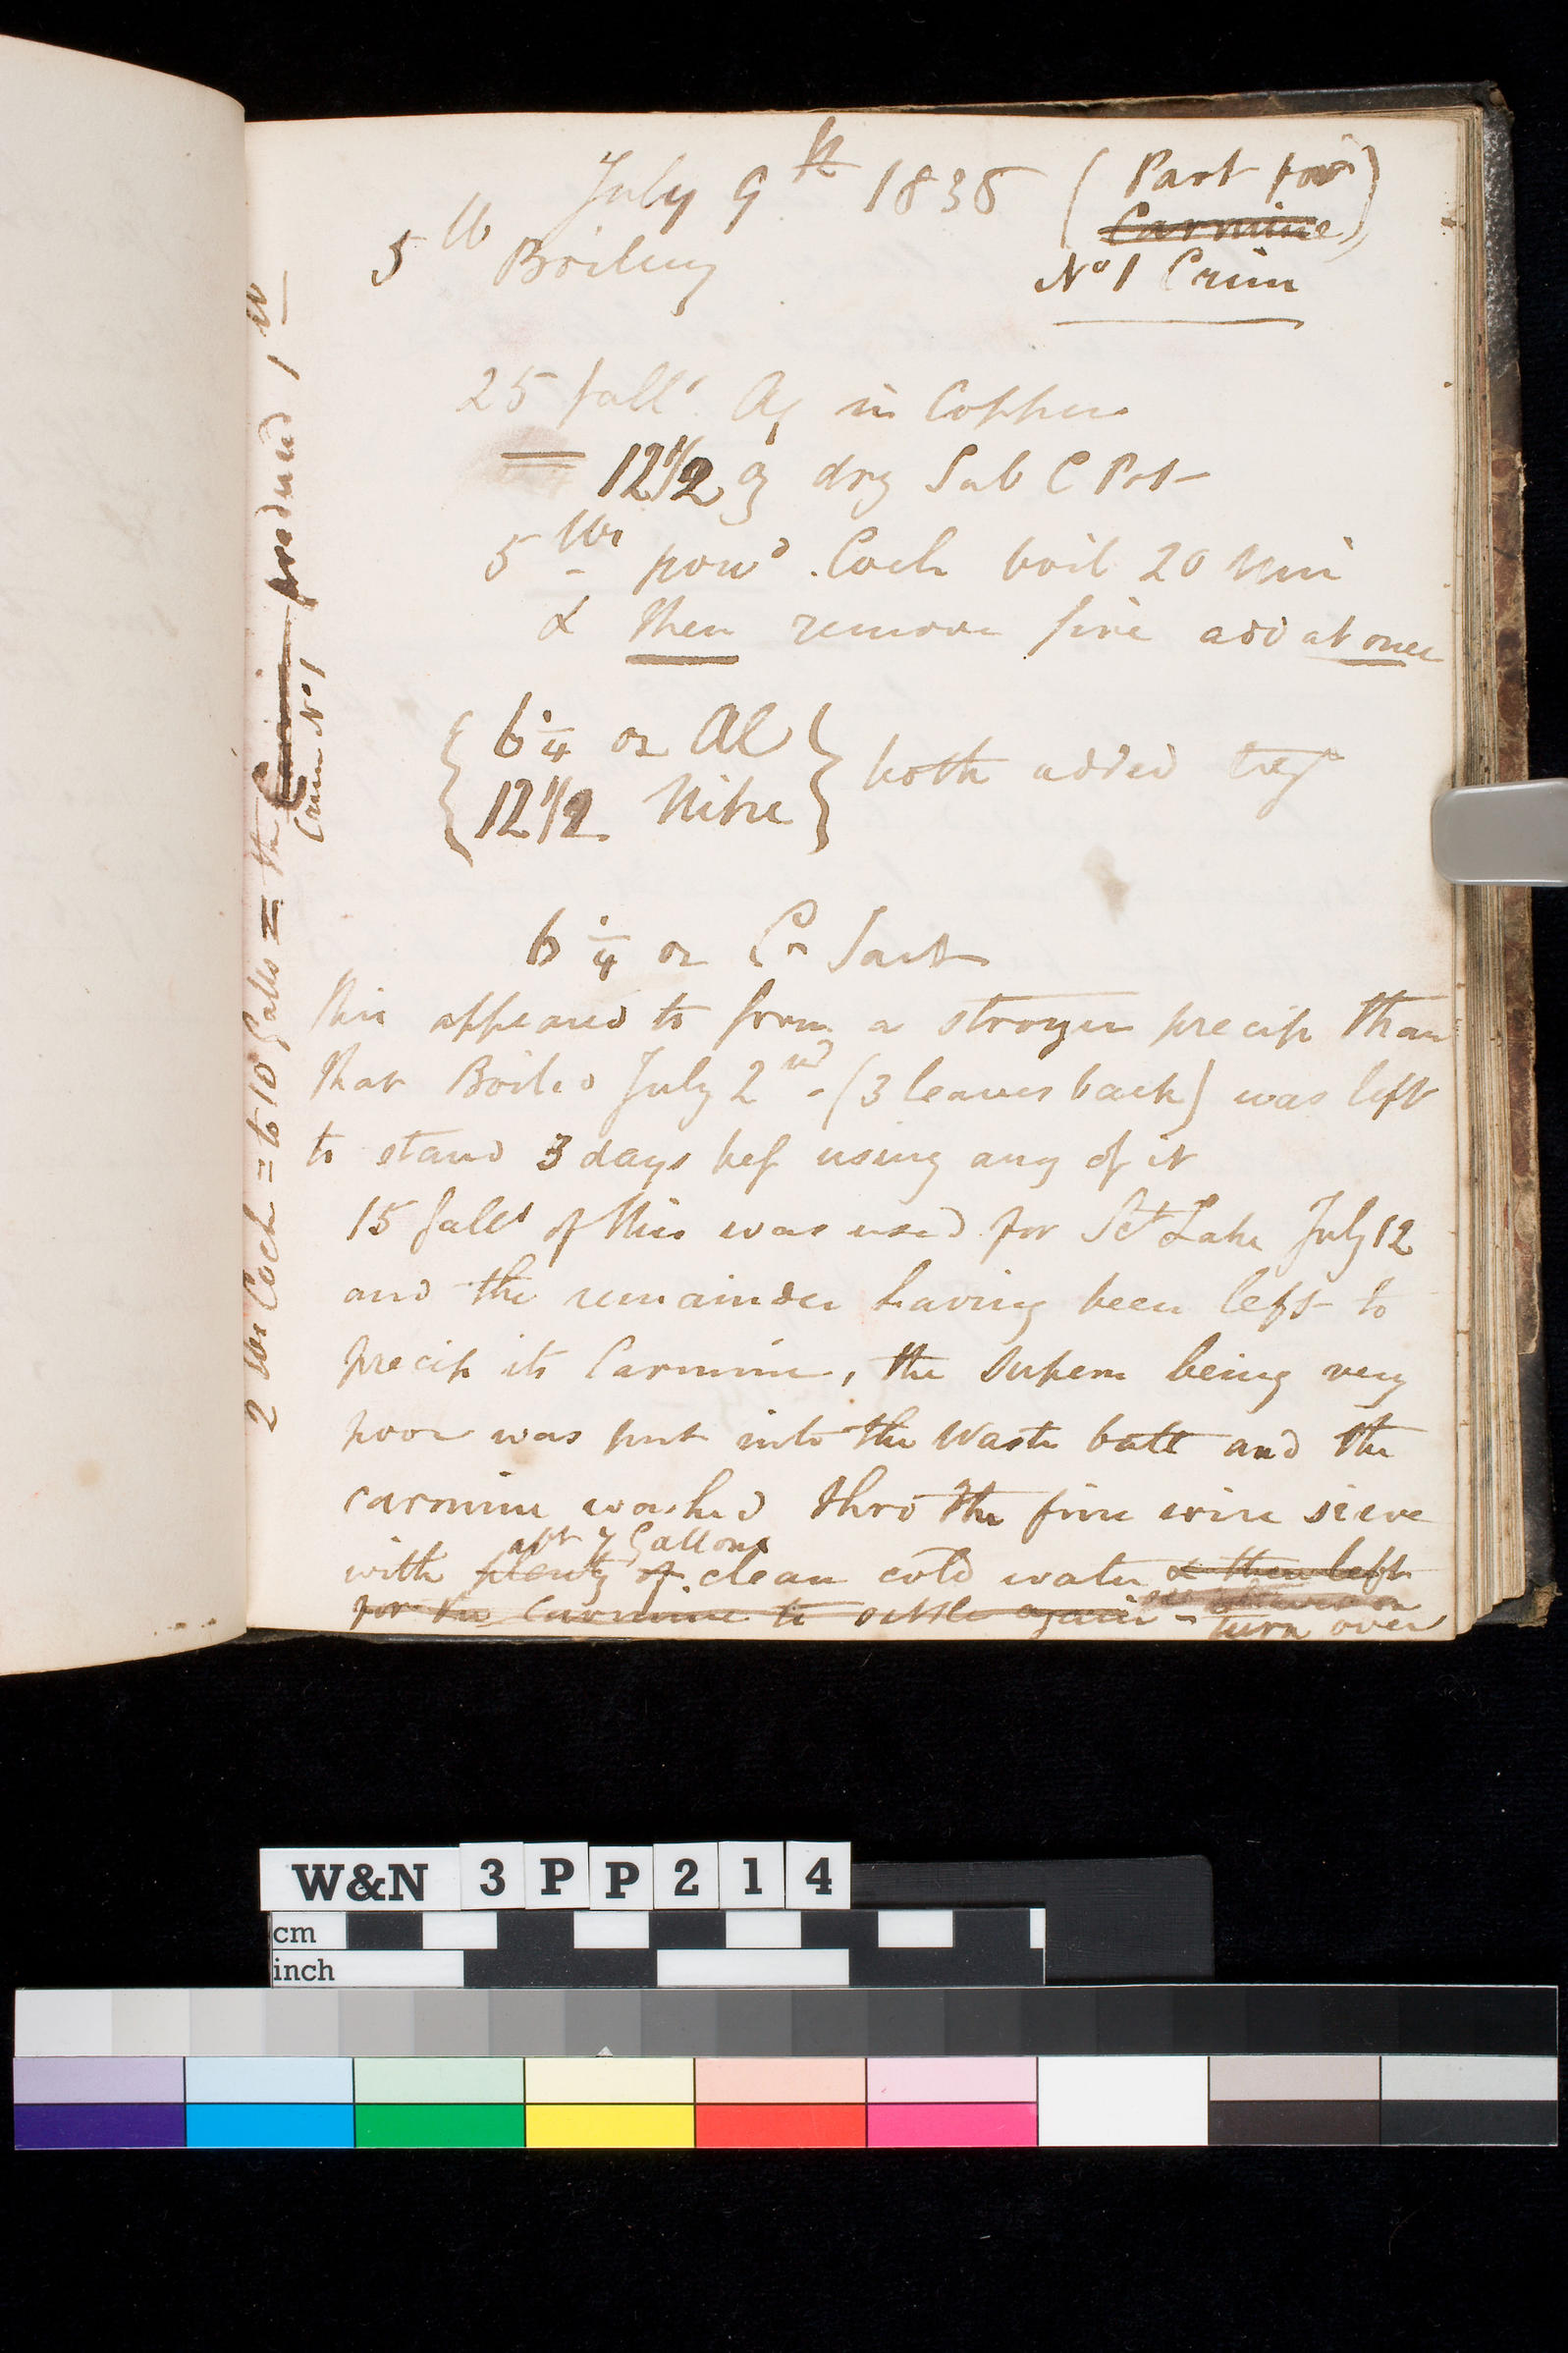 July 9th 1835 (Part for
Carmine)
5 lb Boiling
No 1 Crim
25 Galls Aq in Copper
12 1/2 oz dry Sub C Pot
5 lbs powd. Coch boil 20 Min
& then remove fire add at once
6 1/4 oz Al
12 1/2 Nitre
both added togr
6 1/4 oz Cr Tart
this appeared to form a stronger precip than
that Boiled July 2nd - (3 leaves back) was left
to stand 3 days bef using any of it
15 Galls of this was used for Sct Lake July 12
and the remainder having been left to
precip its Carmine, the supern being very
poor was put into the Waste butt and the
carmine washed thro the fine wire sieve
abt 7 Gallons
with plenty of clean cold water & then left
for the Carmine to settle again -
turn over
2 lbs Coch = to 10 Galls = the Carmine produced 1 lb
Crim No 1
W&N 3PP214
cm
inch